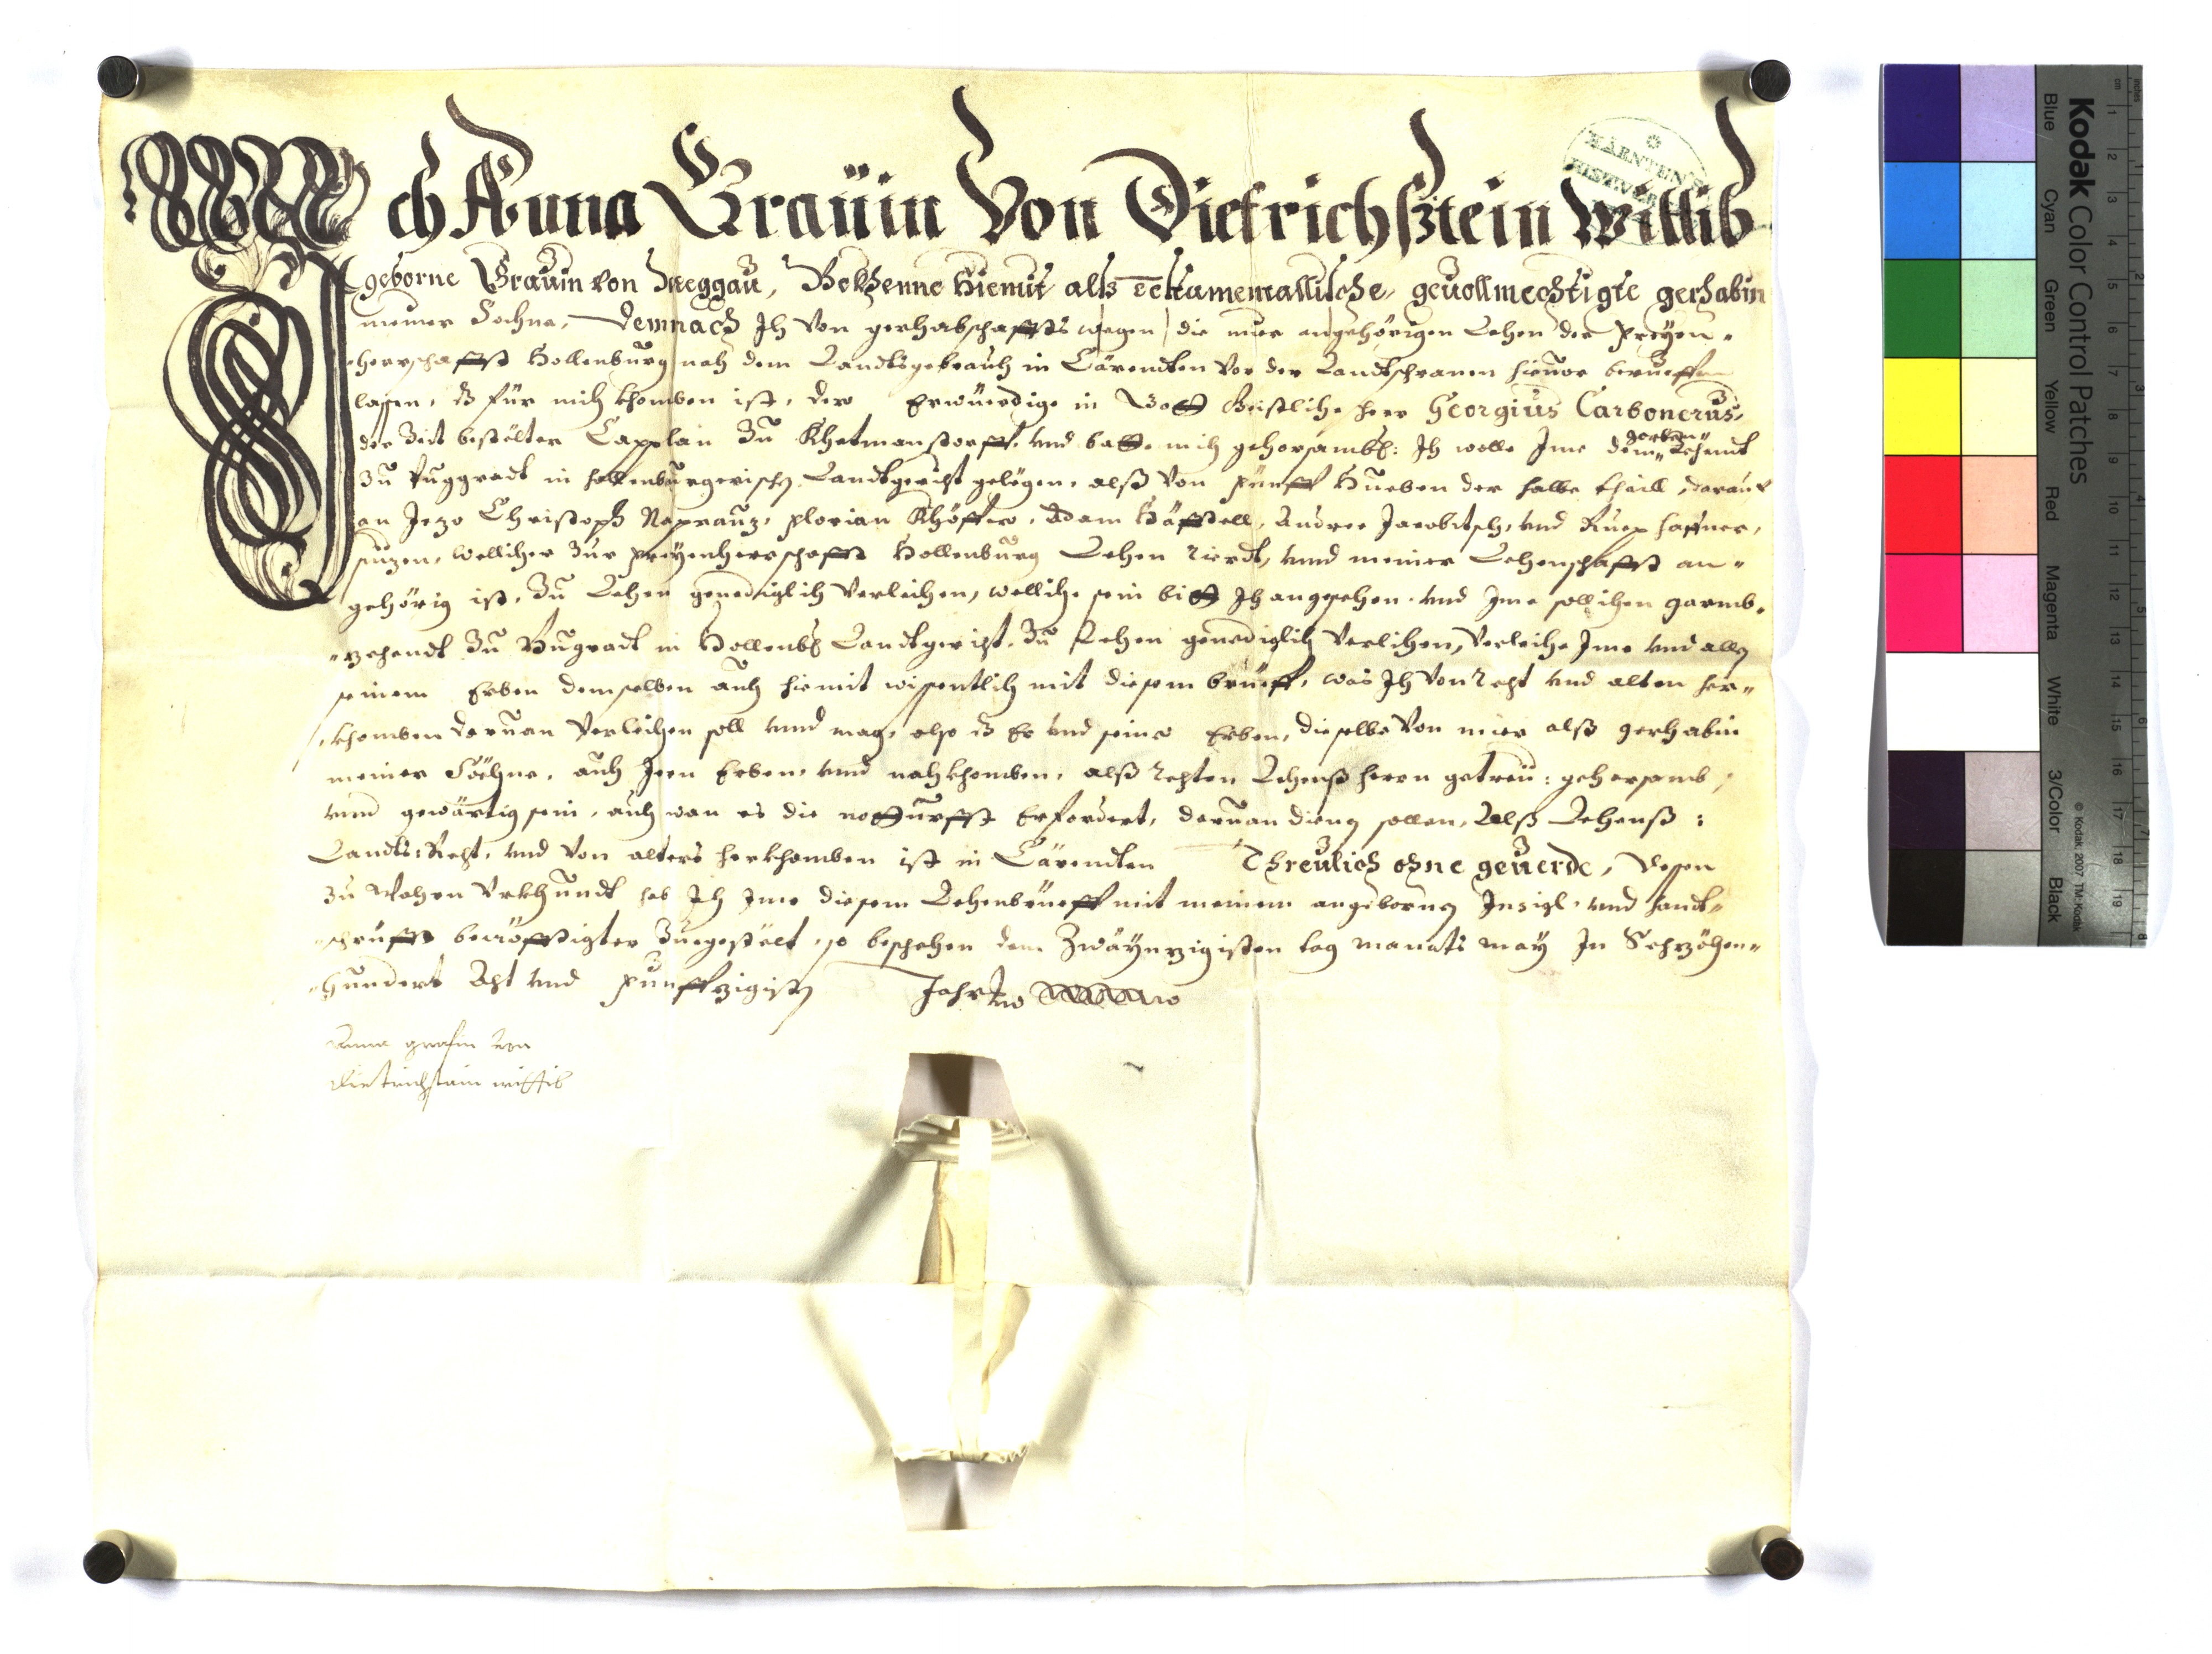 Ich Anna Gräuin Von Dietrichstein Wittib
geborne Gräuin von Bekhenne Hiemit alß Testamentallische, geuollmechtigte gerhabin
meiner Söhne, Demnach Ich von gerhabschaffts wegen, die mier angehörigen Lehen der Freyen„
herrschafft Hollenburg nach dem Landtsgebrauch in Cärendten vor der Landtschrannen hieuor berueffen
lassen, dz für mich khomben ist, der Erwürdige in Gott Geistliche herr Georgius Carbonerus,
der Zeit bestölter Capplan zu Khetmanstorff, vnd batte mich gehorsambl: Ich wolle Ime dem„ garben„ Zehendt
zu Tuggradt in hollenburgerischen Landtgericht gelögen, alß von Fünff Hueben der halbe thaill, darauf
an Jezo Christoph Napranz, Florian Khöffer, Adam Andree Jacobitsch, vnd Ruep haffner,
sitzen, wellicher zur Freyenherrschafft Hollenburg Lehen rierdt, vnnd meiner Lehenschafft an„
gehörig ist, zu Lehen genediglich Verleichen, welliche sein bitt Ich angesehen, vnd Ime sollichen garmb„
„zehendt zu Tugradt in Hollenbl Landtgericht, zu Lehen genediglich Verlichen, Verleiche Ime vnd allen
seinem Erben demselben auch hiemit wissentlich mit diesem brieff, was Ich von recht vnd alten her„
„khomben daruan Verleichen soll vnnd mag, also dz Er vnd seine Erben, dieselbe von mier alß gerhabin
meiner Söhne, auch Iren Erben, vnnd nachkhomben, alß rechten Lehenß herrn getreu: gehorsamb,
vnnd gewärtig sein, auch wan es die notturfft Erfordert, daruan dienen sollen, Alß Lehenß:
Landts: Recht, vnd von alters herkhomben ist in Cärendten Threulich ohne geuerde, dessen
zu wahren Vrkhundt hab Ich Ime diesem Lehenbrieff mit meinem angebornen Insigl, vnd handt„
„schrifft becröfftigter zuegestölt, so beschehen dem Zwäynzigisten tag monats may In Sechzöhen„
„hundert Acht vnd Funffzigisten Jahr
Anna grafin von
Dietrichstain wittib
KÄRNTEN
HIST. VER
Kodak Color Control Patches
Blue Cyan Green Yellow Red Magenta White 3/Color Black
© Kodak, 2007 TM: Kodak
cm 1 2 3 4 5 6 7 8 9 10 11 12 13 14 15 16 17 18 19
inches 1 2 3 4 5 6 7 8